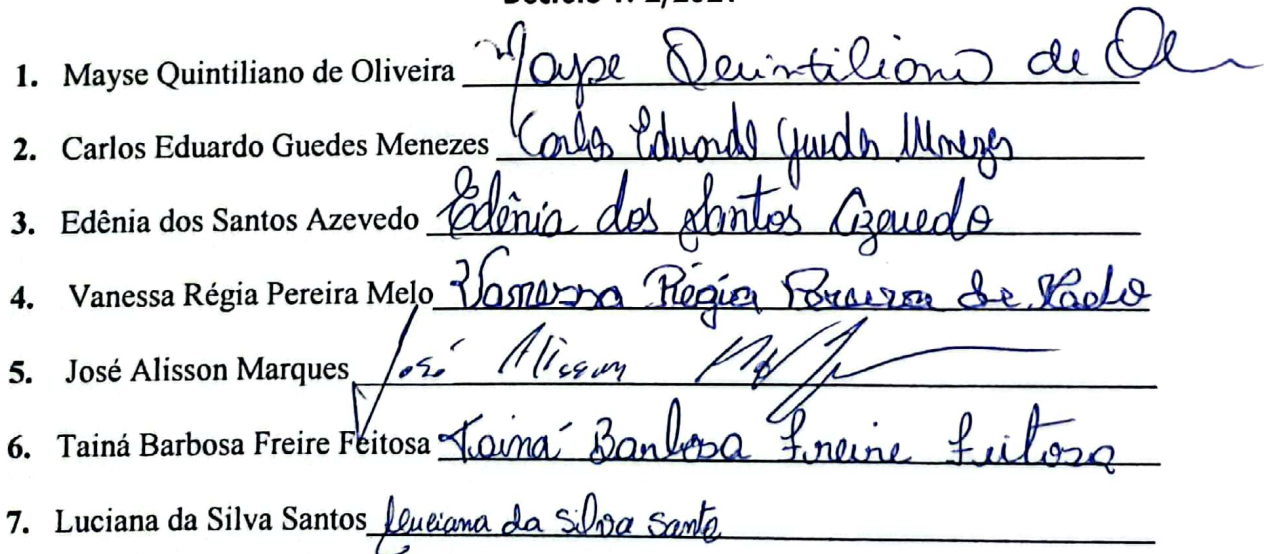 1. Mayse Quintiliano de Oliveira Mayse Quintiliano de
2. Carlos Eduardo Guedes Menezes Carlos Eduardo Guedes Menezes
3. Edênia dos Santos Azevedo Edênia dos Santos Azevedo
4. Vanessa Régia Pereira Melo Vanessa Régia Pereira de
5. José Alisson Marques José Alisson
6. Tainá Barbosa Freire Feitosa Tainá Barbosa Freire Feitosa
7. Luciana da Silva Santos Luciana da Silva Santos